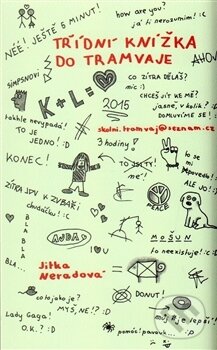 NÉÉ! JEŠTĚ 5 MINUT!
how are you?
já ti nerozumím! :c
TŘÍDNÍ KNÍŽKA
DO TRAMVAJE
AHOJ
SIMPSNOVI
CO ZÍTRA DĚLÁŠ?
nic :)
CHCEŠ JÍT KE MĚ?
jasně, v kolik?
DOMLUVÍME SE!
K + L =
2015
skolni.tramvaj@seznam.cz
takhle nevypadá!
TO JE
JEDNO! :D
3 hodiny!
KONEC!
TO JSI TY!
ne!
to se mi
nepovedlo!
ALE JO!
:D
ZÍTRA JDU K ZUBAŘI
chudáčku! :c
PEACE
BLA
BLA
BLA
BLA...
AUDAS
MOŠUN
to neexistuje! :c
Jitka
Neradová
co to je jako je?
MYŠ, NE!? :D
DONUT!
Lady Gaga!
O.K.? :D
můj je lepší!
pomóc! pavouk... :D